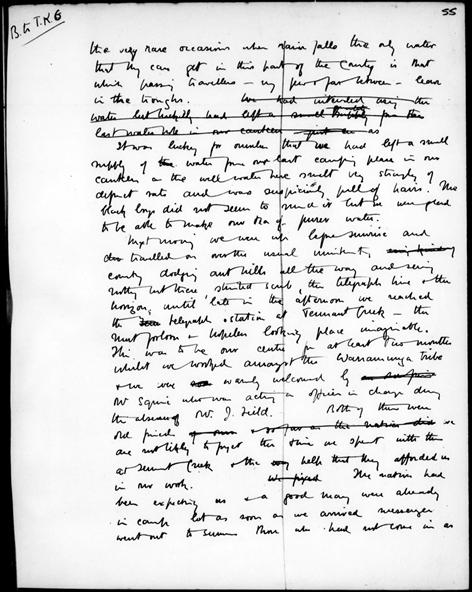 B. to T.K. 6
55
the very rare occasions when rain falls the only water
that they can get in this part of the country is that
which passing travellers – very few & far between – leave
in the troughs. We had intended using the
water but luckily had left a small supply from the
last water hole in our canteen – just as
It was lucky for ourselves that we had left a small
supply of the water from our last camping place in our
canteen as the well water here smelt very strongly of
defunct rats and was suspiciously full of hairs. The
black boys did not seem to mind it but we were glad
to be able to make our tea of purer water.
Next morning we were up before sunrise and
travelled on over the usual uninteresting
country dodging ant hills all the way and seeing
nothing but these stunted scrub, the telegraph line & the
horizon, until late in the afternoon we reached
the telegraph station at Tennant Creek – the
most forlorn & hopeless looking place imaginable.
This was to be our centre for at least two months
whilst we worked amongst the Warramunga tribe
& we were warmly welcomed by
Mr Squire who was acting as officer in charge during
the absence of Mr. J. Field. Both of them were
old friends of ours & so far as the natives did we
are not likely to forget the time we spent with them
at Tennant Creek & the help that they afforded us
in our work. We fixed The natives had
been expecting us & a good many were already
in camp but as soon as we arrived messengers
went out to summon those who had not come in as